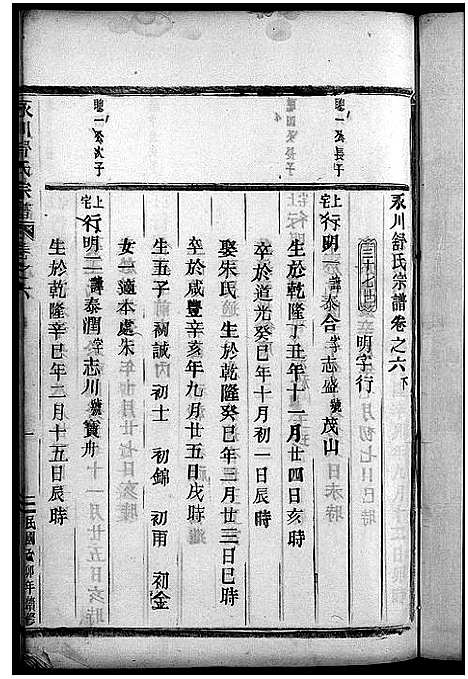 永川舒氏宗譜卷之六下
三十七世 明字行
聰一公長子
上宅行明一諱泰合字志盛號茂山
生於乾隆丁丑年十一月廿四日亥時
卒於道光癸巳年十月初一日辰時
娶朱氏 生於乾隆癸巳年三月廿三日巳時
卒於咸豐辛亥年九月廿五日戌時
生五子 初誠 初士 初錦 初雨 初金
女一適本處朱
聰一公次子
上宅行明二諱泰潤字志川號寶舟
生於乾隆辛巳年二月十五日辰時
永川舒氏宗譜 卷之六
民國 卯年續修